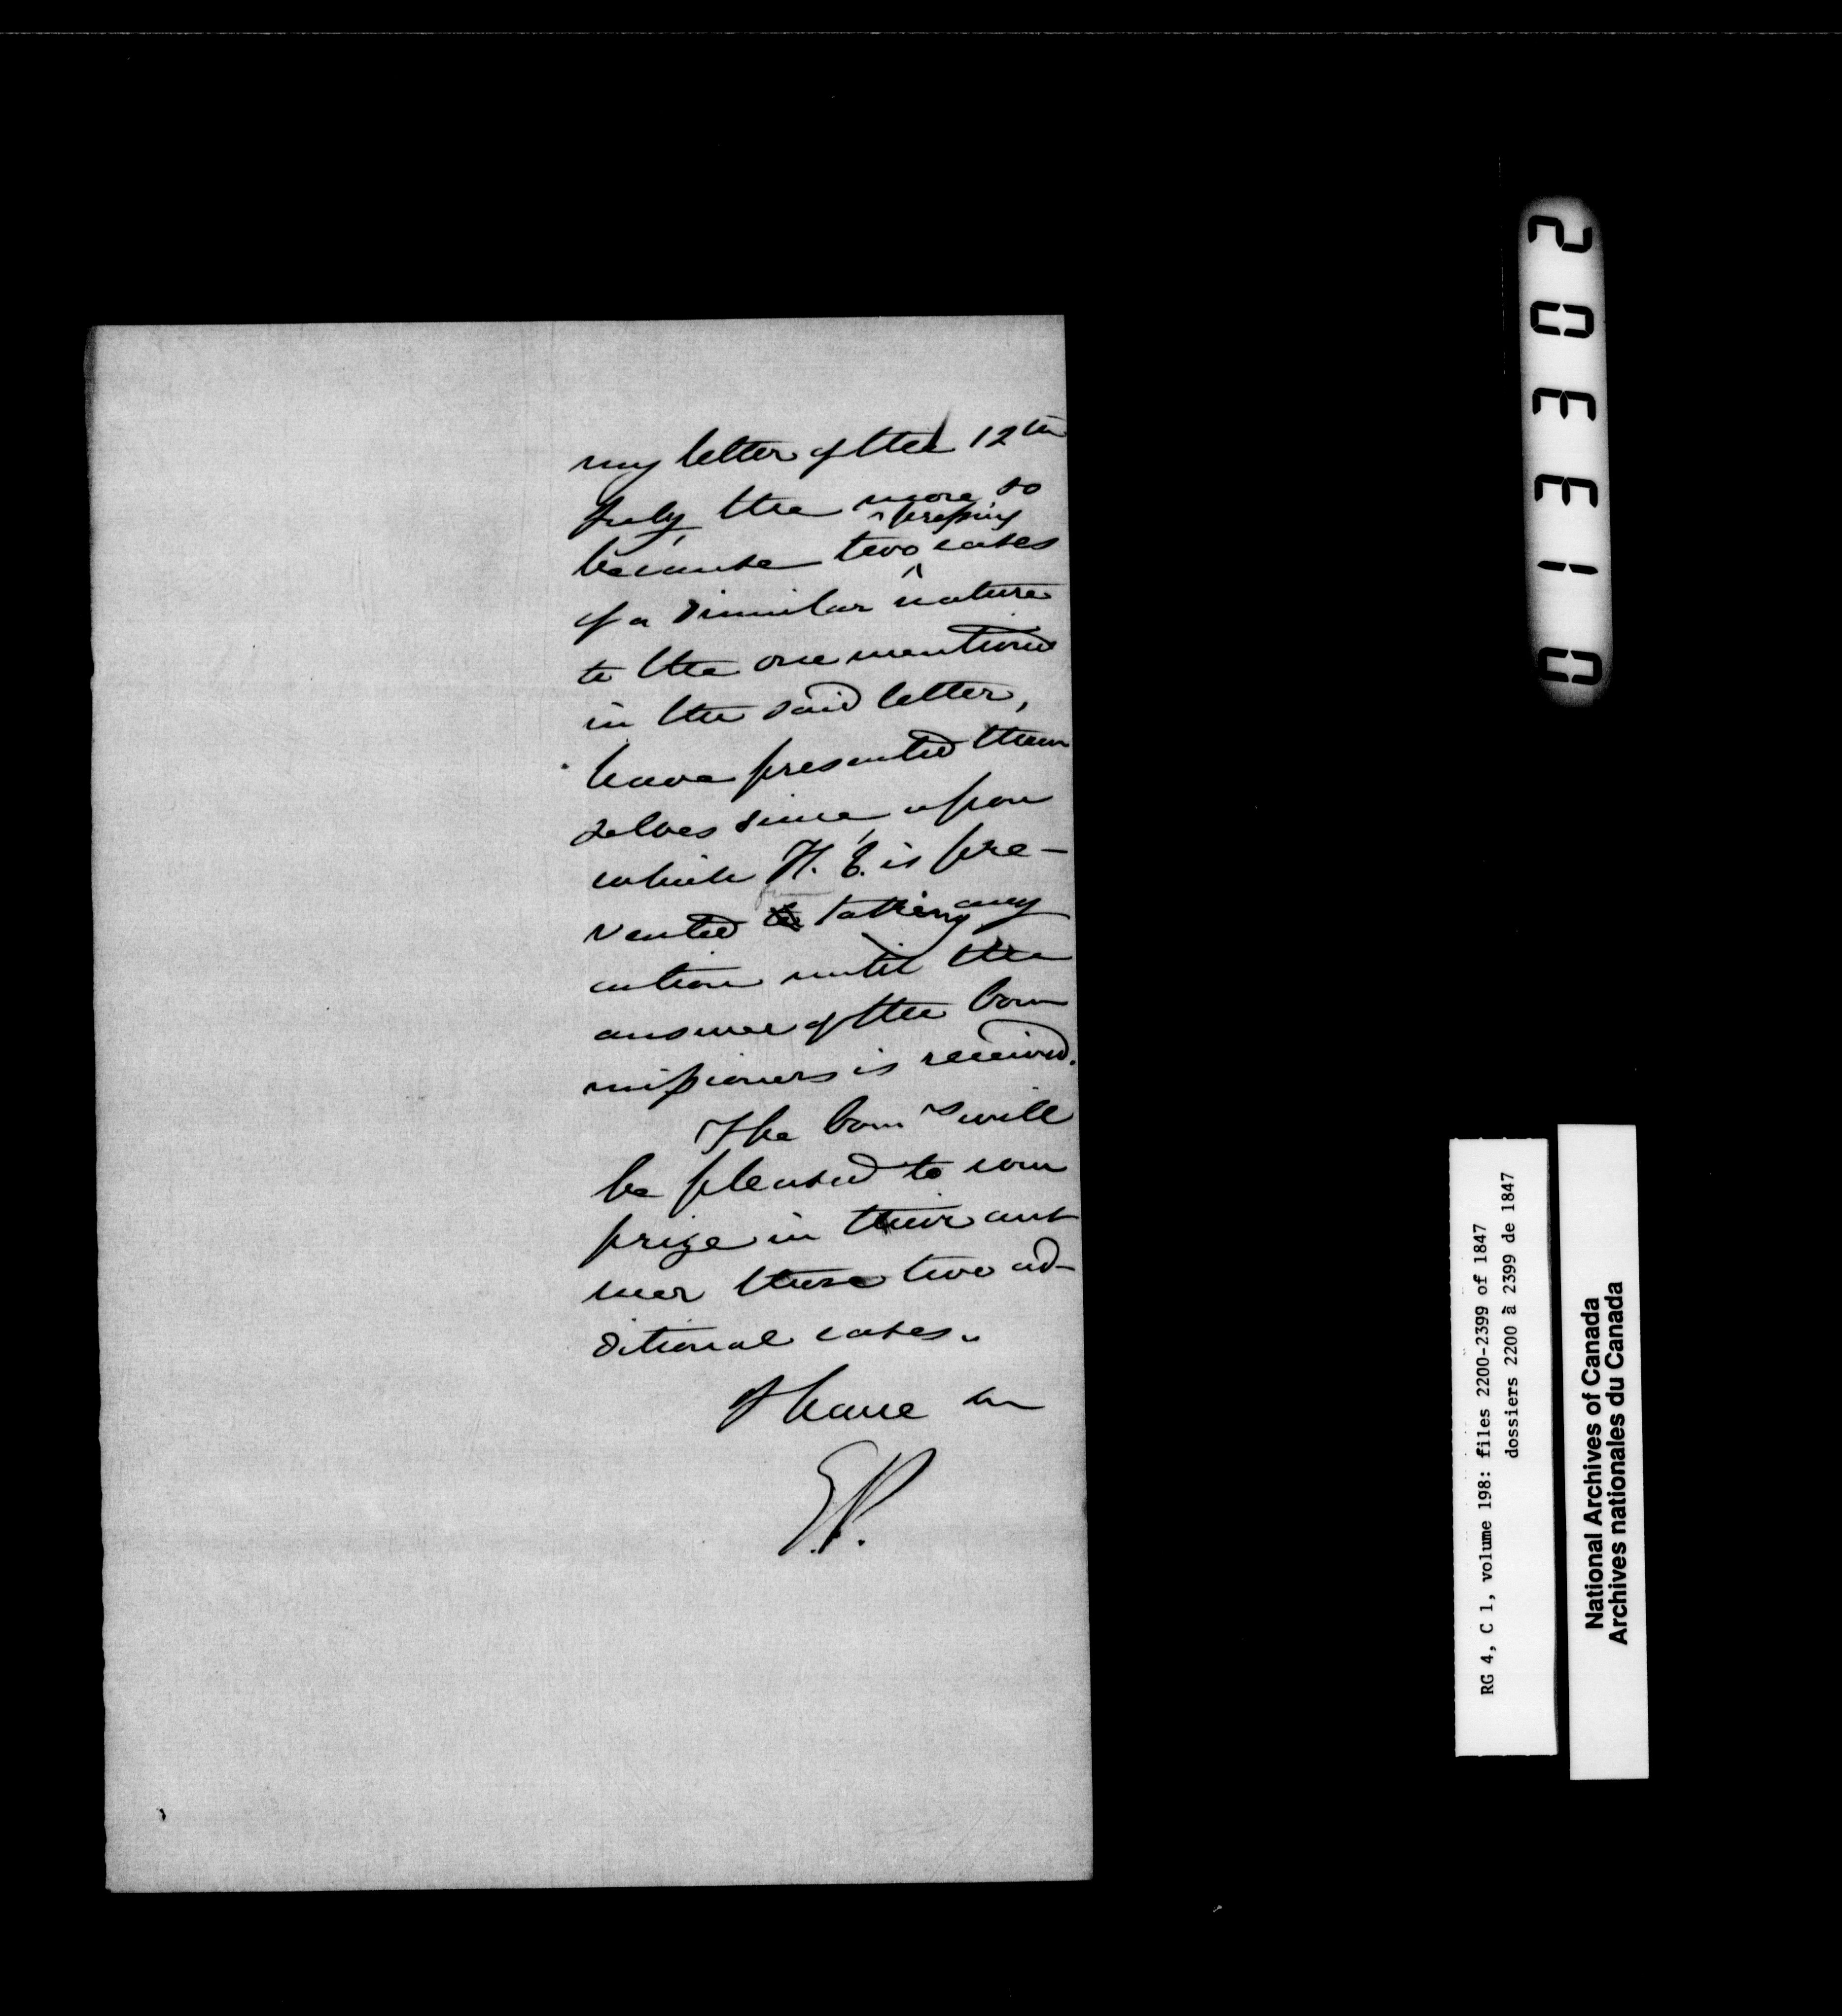 my letter of the 12th
July, the more so
because two pressing cases
of a similar nature
to the one mentioned
in the said letter,
have presented them
selves since upon
which H. E. is pre-
vented from taking any
action until the
answer of the Com
missioners is received.
The Comrs will
be pleased to com
prize in their ans
wer these two ad-
ditional cases.
I have &c
E.P.
013302
RG 4, C 1, volume 198: files 2200-2399 of 1847
dossiers 2200 à 2399 de 1847
National Archives of Canada
Archives nationales du Canada